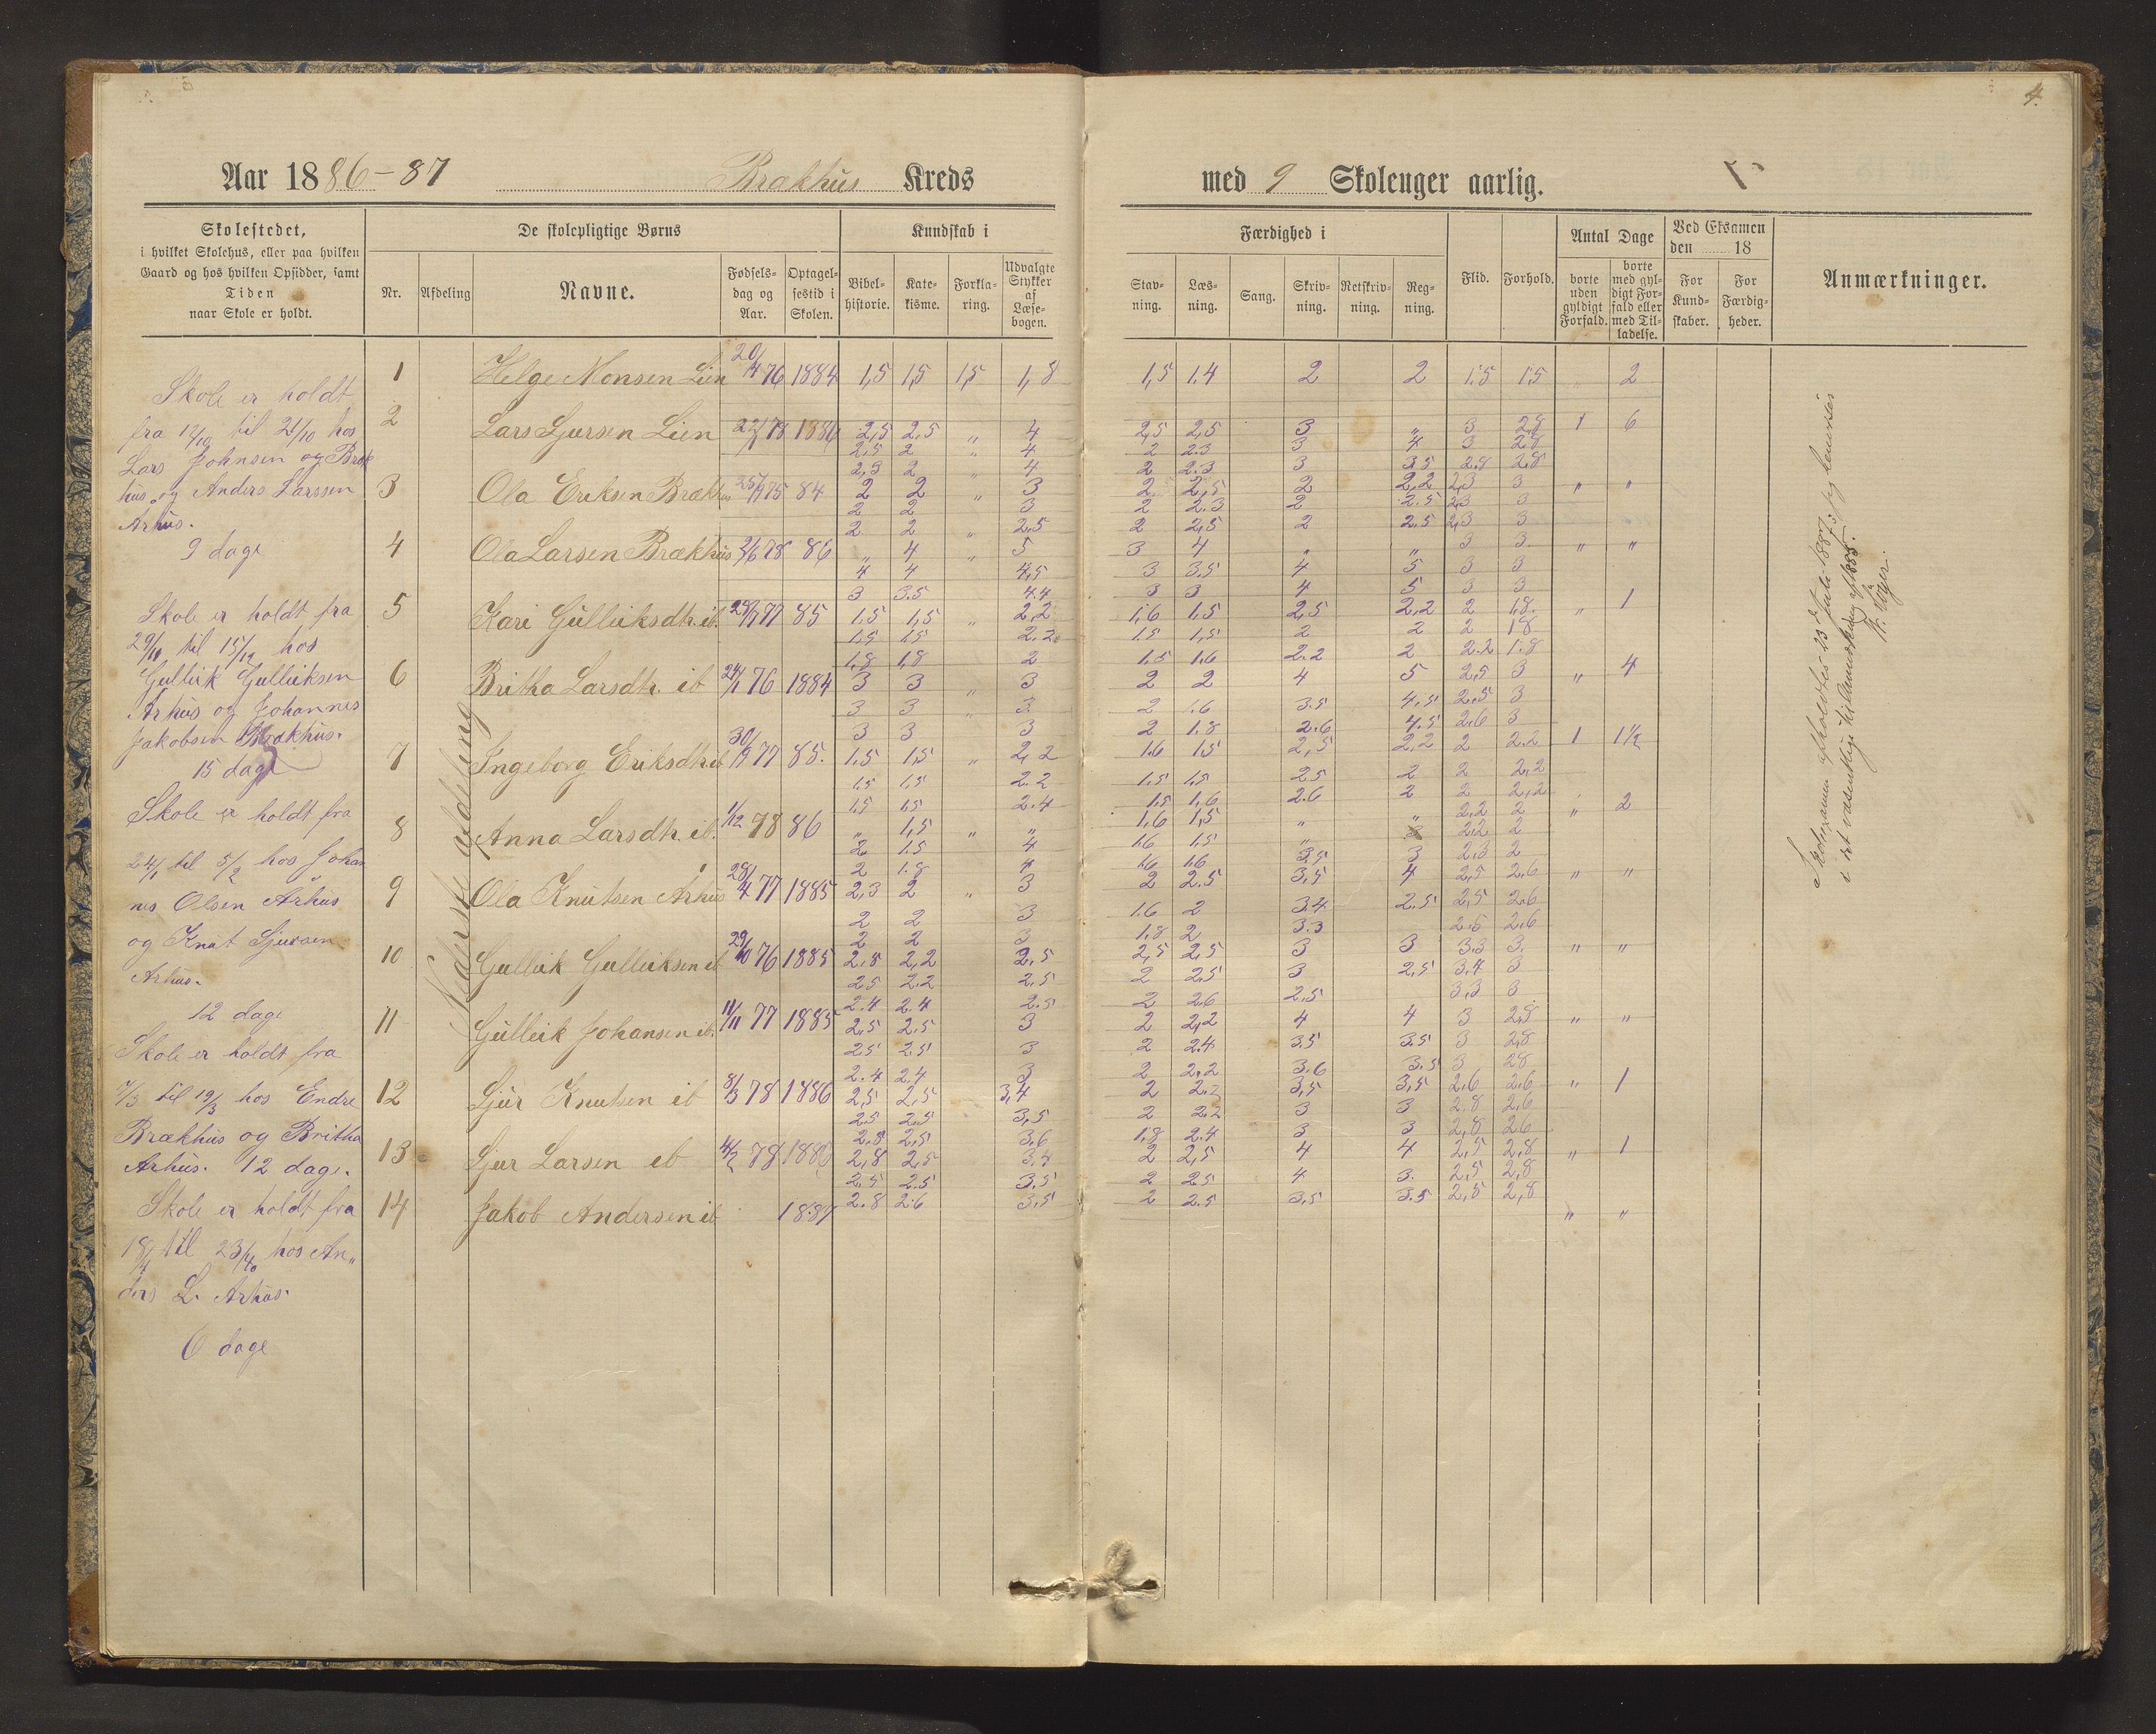 4.
Aar 1886-87 Brækhus Kreds
med 9 Skoleuger aarlig.
Skolestedet,
i hvilket Skolehus, eller paa hvilken
Gaard og hos hvilken Opsidder, samt
Tiden
naar Skole er holdt.
De skolepligtige Børns
Nr. Afdeling Navne.
Fødsels-
dag og
Aar.
Optagel-
sestid i
Skolen.
Kundskab i
Bibel-
historie.
Kate-
kisme.
Forkla-
ring.
Udvalgte
Stykker
af
Læse-
bogen.
Færdighed i
Stav-
ning.
Læs-
ning.
Sang.
Skriv-
ning.
Retskriv-
ning.
Reg-
ning.
Flid. Forhold.
Antal Dage
borte
uden
gyldigt
Forfald.
borte
med gyl-
digt For-
fald eller
med Til-
ladelse.
Ved Eksamen
den 18
For
Kund-
skaber.
For
Færdig-
heder.
Anmærkninger.
Skole er holdt
fra 12/10 til 21/10 hos
Lars Johnsen og Bræk
hus og Anders Larssen
Arhus.
9 dage
Skole er holdt fra
29/11 til 15/12 hos
Gulleik Gulleiksen
Arhus og Johannes
Jakobsen Brakhus.
15 dage
Skole er holdt fra
24/1 til 5/2 hos Johan
nes Olsen Århus
og Knut Sjursen
Arhus.
12 dage
Skole er holdt fra
7/3 til 19/3 hos Endre
Brækhus og Britha
Arhus. 12 dage.
Skole er holdt fra
18/4 til 23/4 hos An„
ders L. Arhus.
6 dage
Nederste afdeling
1 Helge Monsen Lien 20/4 76 1884 1,5 1,5 1,5 1,8 1,5 1.4 2 2 1.5 1.5 2
2 Lars Sjursen Lien 78 1886 2,5 2,5 „ 4 2,5 2,5 3 „ 3 2,8 1 6
2,5 2 „ 4 2 2.3 3 4 3 2,8
2,3 2 „ 4 2 2.3 3 3.5 2,8 2,8
3 Ola Eriksen Brækhus 75 84 2 2 „ 3 2 2,5 2 2,2 2,3 3 „ „
2 2 3 2 2.3 2 2.5 2,3 3
2 2 „ 2,5 2 2,5 2 2,5 2,3 3
4 Ola Larsen Brækhus 2/6 78 86 „ 4 „ 5 3 4 „ „ 3 3 „ „
4 4 4,5 3 3,5 4 5 3 3
3 3.5 4.4 3 3 4 5 3 3
5 Kari Gulleiksdtr. ib. 77 85 1.5 1,5 „ 2,2 1,6 1.5 2,5 2,2 2 1,8. „ 1
1.5 1.5 2.2 1.5 1,5 2 2 2 1.8
1,8 1,8 2 1.5 1.6 2.2 2 2.2 1.8
6 Britha Larsdtr. ib 24/1 76 1884 3 3 „ 3 2 2 4 5 2,5 3 „ 4
3 3 „ 3 2 1.6 3.5 4,5 2,5 3
3 3 3 2 1.8 2.6 4.5 2,6 3
7 Ingeborg Eriksdtr. ib 30/9 77 85. 1.5 1,5 „ 2,2 1.6 1.5 2,5 2,2 2 2.2 1 1½
1,5 1,5 2.2 1.5 1.5 2.5 2 2 2,2
1,5 1,5 2.4 1,5 1,6 2.6 2 2 2,2
8 Anna Larsdtr. ib. 1/12 78 86 „ 1,5 „ „ 1,6 1,5 „ „ 2,2 2 „ 2
2 1.5 4 1.6 1.5 „ 3 2,2 2
2 1.8 4 1.6 1.6 3.5 3 2.3 2
9 Ola Knutsen Århus 28/4 77 1885 2,3 2 „ 3 2 2.5 3,5 4 2,5 2,6 „ „
2 2 3 1.6 2 3.4 2.5 2,5 2.6
2 2 3 1.8 2 3.3 2.5 2.6
10 Gulleik Gulleiksen ib 29/10 76 1885 2.8 2,2 2,5 2,5 2,5 3 3 3.3 3. „ „
2.5 2.2 2.5 2 2.5 3 2,5 3.4 3
2.4 2.4 2.5 2 2.6 2.5 3,3 3
11 Gulleik Johansen ib. 11/11 77 1885 2,5 2.5 3 2 2,2 4 4 3 2,8 „ „
2.5 2.5 3 2 2.4 3.5 3.5 3 2,8
2.4 2.4 3 2 2,2 3.6 3.5 3 2.8
12 Sjur Knutsen ib 8/3 78 1886 2,5 2,5 3,4 2 2.2 3,5 3,5 2,6 2,6 „ 1
2.5 2.5 3,5 2 2.2 3 3 2.8 2,6
2,8 2,5 3.6 1.8 2.4 3 3 2,8 2.6
13 Sjur Larsen ib 78 1886 2,8 2,5 3.4 2 2,5 4 4 2,5 2,8 „ 1
2.5 2.5 3.5 2 2.5 4 3. 2,5 2,8
2.8 2.6 3,5 2 2.5 3.5 3.5 2,5 2,8
14 Jakob Andersen ib 1887 „ „
Skoleexamen afholdtes 23de Juli 1887, og henvises
i det væsentlige til anmærkning af 1885.